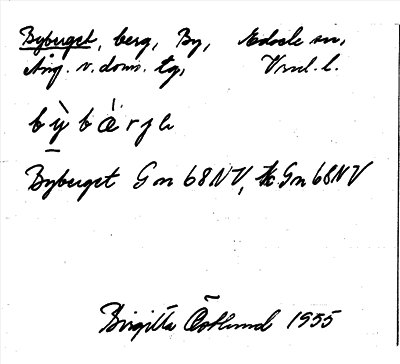 Byberget, berg, By, Edsele sn,
Ång. v. doms. tg, Vnl. l.
bỳbärjh
Byberget Gm 68NV, tk Gm 68NV
Birgitta Östlund 1955